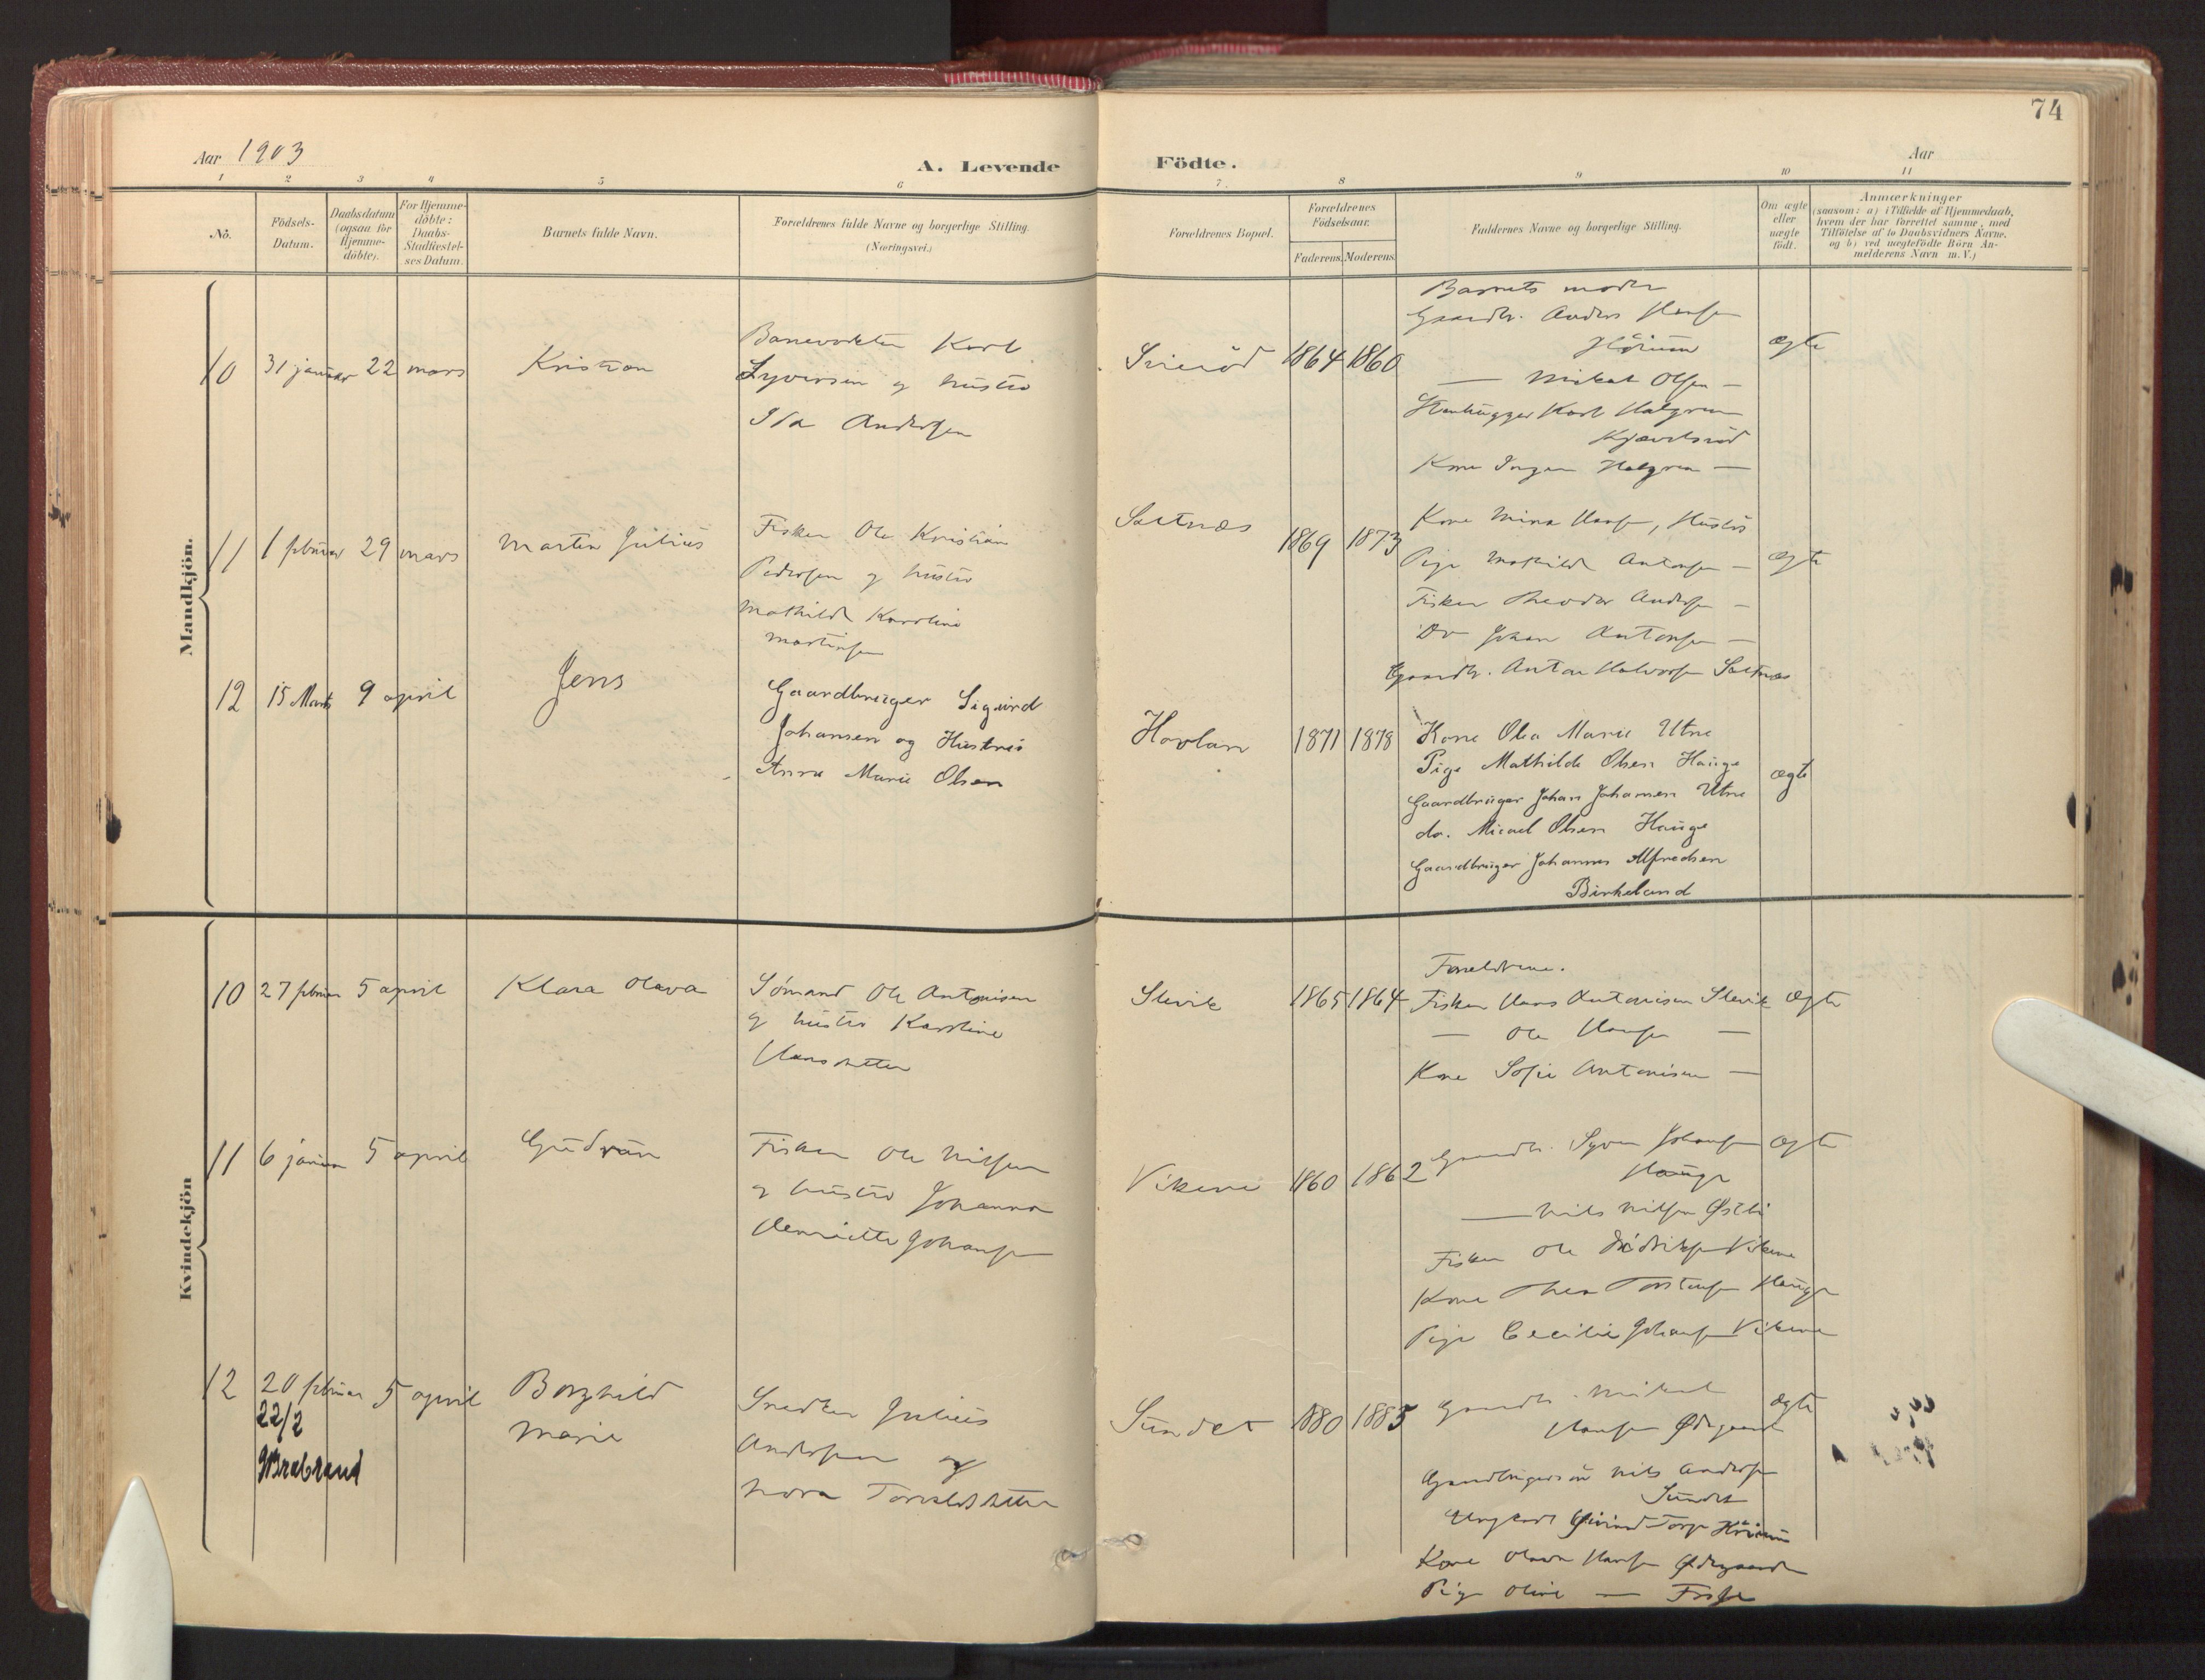 74
Aar 1903
A. Levende Födte.
Aar
1 2 3 4 5 6 7 8 9 10 11
No.
Födsels-
Datum.
Daabsdatum
(ogsaa for
Hjemme-
döbte).
For Hjemme-
döbte:
Daabs-
Stadfæstel-
ses Datum.
Barnets fulde Navn.
Forældrenes fulde Navne og borgerlige Stilling.
(Næringsvei.)
Forældrenes Bopæl.
Forældrenes
Födselsaar.
Faderens. Moderens.
Faddernes Navne og borgerlige Stilling.
Om ægte
eller
uægte
födt.
Anmærkninger
(saasom: a) i Tilfælde af Hjemmedaab,
hvem der har forrettet samme, med
Tilföielse af to Daabsvidners Navne,
og b) ved uægtefödte Börn An-
melderens Navn m. V.)
Mandkjön.
10 31 januar 22 mars Kristian
Banevokter Karl
Syversen og hustru
Ida Andersen
1864 1860
Barnets moder
Gaardbr. Anders Hansen
Mikal Olsen —
Stenhugger Karl Halgren
Kone Inga Halgren —
ægte
11 1 februar 29 mars Martin Julius
Fisker Ole Kristian
Pedersen og hustru
Mathilde Karoline
Martinsen
Saltnæs
1869 1873
Kone Mina Hansen,
Pige Mathilde Antonsen —
Fisker Theodor Andersen —
Do Johan Antonsen —
Gaardbr. Anton Halvorsen Saltnæs
ægte
12 15 Marts 9 april Jens
Gaardbruger Sigurd
Johansen og Hustru
Anna Marie Olsen
Hovlan
1871 1878
Kone Olea Marie Utne
Pige Mathilde Olsen Hauge
Gaardbruger Johan Johansen Utne
do. Micael Olsen Hauge
Gaardbruger Johannes Alfredsen
Birkeland
ægte
Kvindekjön
10 27 februar 5 april Klara Olava
Sømand Ole Antonisen
og hustru Karoline
Hansdatter
Slevik
1865 1864
Forældrene.
Fisker Hans Antonisen Slevik
— Ole Hansen —
Kone Sofie Antonisen —
ægte
11 6 januar 5 april Gudrun
Fisker Ole Nilsen
og hustru Johanna
Henriette Johansen
Vikene
1860 1862
Gaardbr. Syver Johansen
Hauge
— Nils Nilsen Østbi
Fisker Ole Vikene
Kone Thea Torstensen Hauge
Pige Cecilie Johansen Vikene
ægte
12 20 februar 5 april Borghild
Marie
22/2
GBrabrand
Snedker Julius
Andersen og
Nora Torvaldsdatter
Sundet
1880 1885
Gaardbr. Mikal
Hansen Ødegaard
Gaardbrugersøn Nils Andersen
Sundet
Ungkarl Eivind Torp
Kone Olava Hansen Ødegaard
Pige Oline —
ægte